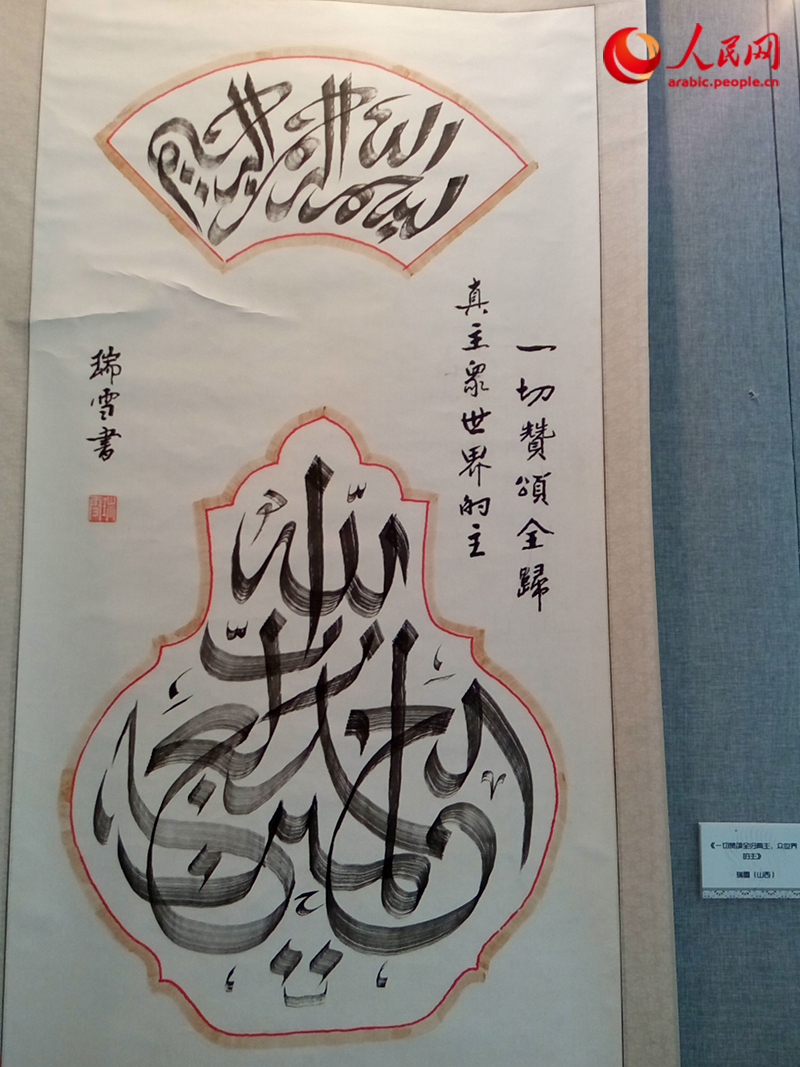 人民网
arabic.people.cn
بسم الله الرحمن الرحيم
一切赞颂全归
真主众世界的主
瑞雪书
الحمد لله رب العالمين
《一切赞颂全归真主,众世界
的主》
瑞雪（山西）